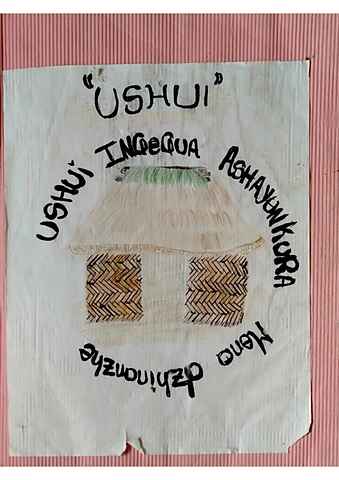 "USHUI"
USHUI INQEQUA ASHAYUNKURA
Mena dzhinanzhe